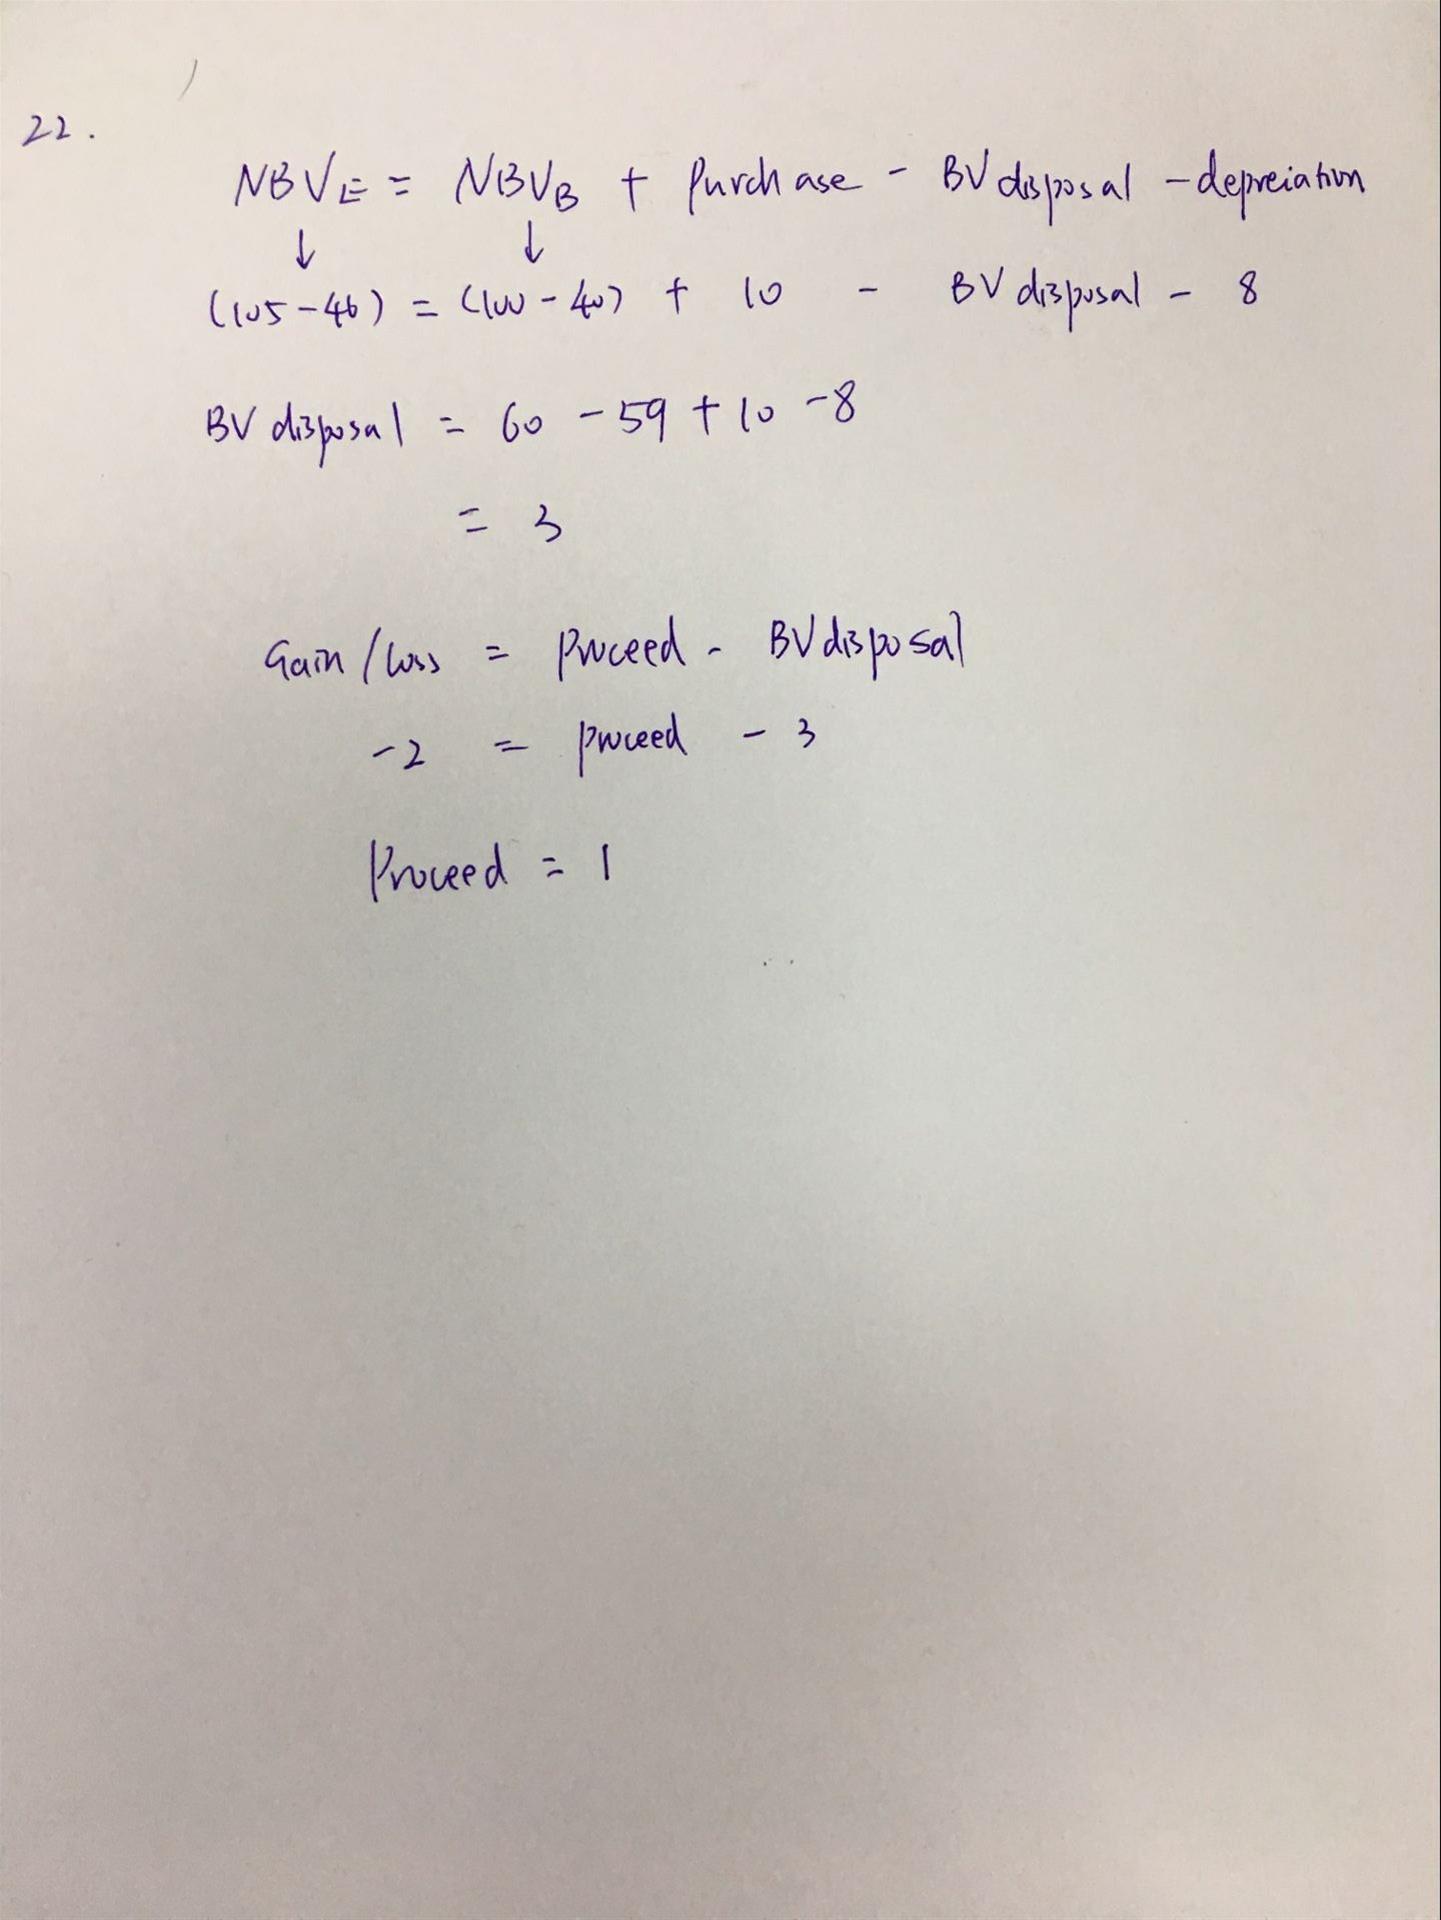 22.
NBVE = NBVB + Purchase - BV disposal - depreiation
↓ ↓
(105-46) = (100-40) + 10 - BV disposal - 8
BV disposal = 60 - 59 + 10 - 8
= 3
Gain/loss = Proceed - BV disposal
-2 = proceed - 3
Proceed = 1